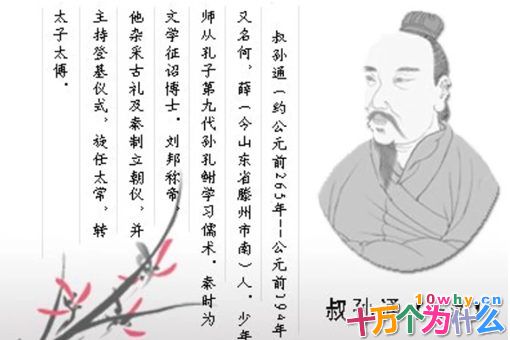 叔孙通（约公元前265年--公元前194年
又名何，薛（今山东省滕州市南）人，少年
师从孔子第九代孙孔鲋学习儒术。秦时为
文学征诏博士。刘邦称帝，
他杂采古礼及秦制立朝仪，并
主持登基仪式，旋任太常，转
太子太傅.
叔孙通
10why.cn
十万个为什么